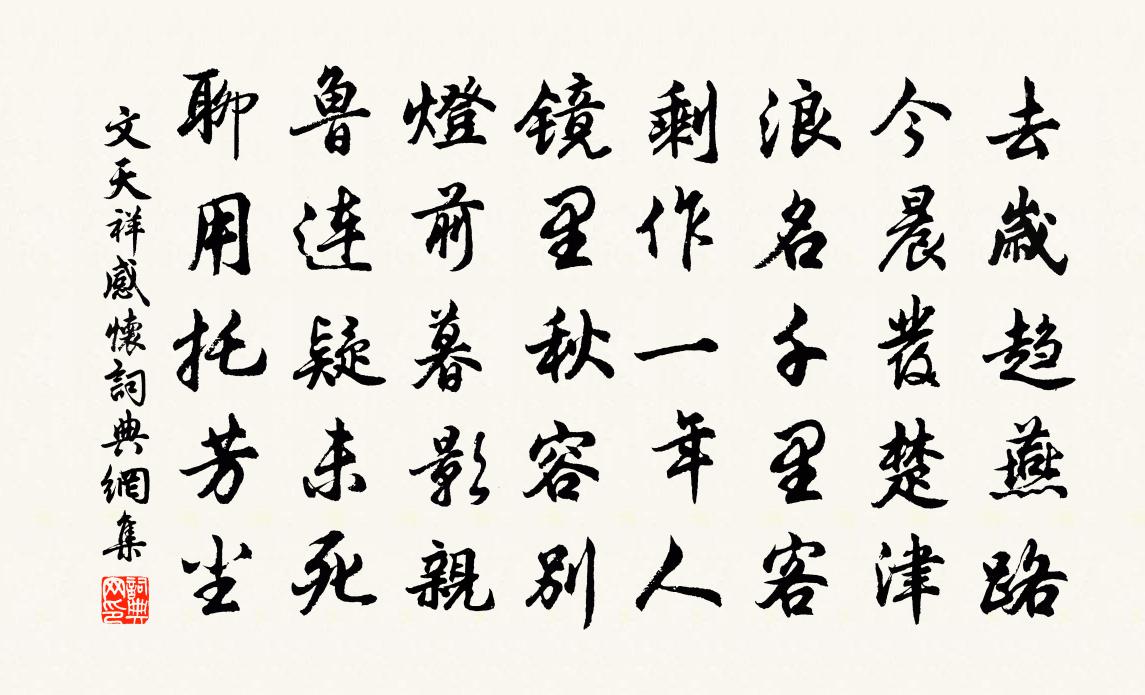 去歲趋燕路
今晨發楚津
浪名千里客
剩作一年人
镜里秋容别
燈前暮影親
魯連疑未死
聊用托芳尘
文天祥感懷詞典網集
詞典网印